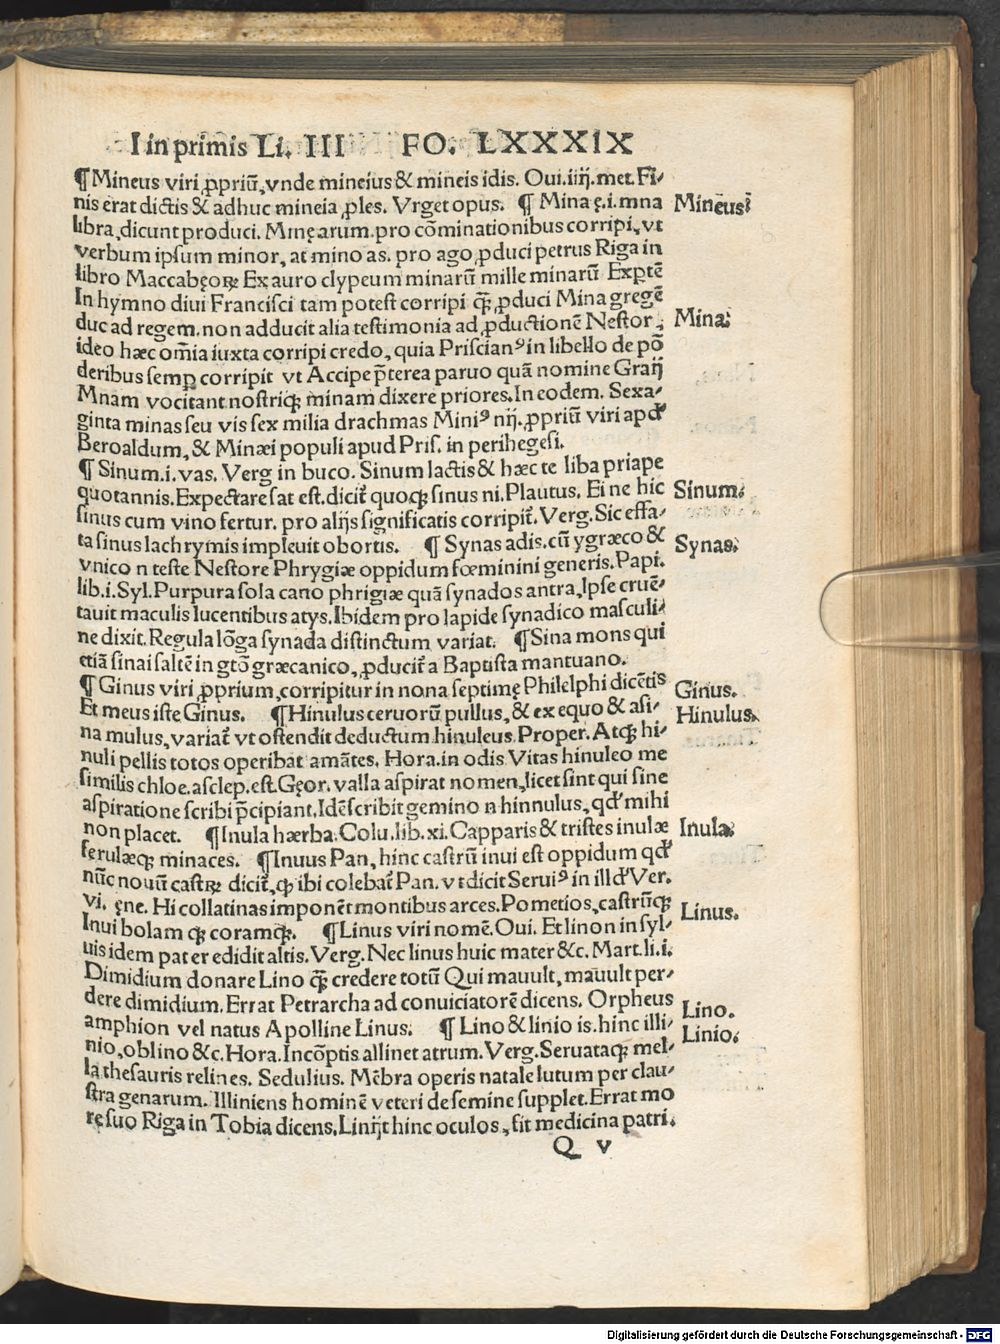 I in primis Li. III FO. LXXXIX
¶ Mineus viri ꝓpriũ, vnde mineius & mineis idis. Oui. iiij. met. Fi-
nis erat dictis & adhuc mineia ꝓles. Vrget opus. ¶ Mina ę. i. mna
libra, dicunt produci. Minęarum pro cõminationibus corripi, vt
verbum ipsum minor, at mino as. pro ago ꝓduci petrus Riga in
libro Maccabęoꝝ Ex auro clypeum minarũ mille minarũ Exptẽ
In hymno diui Francisci tam potest corripi q̃ꝫ ꝓduci Mina gregẽ
duc ad regem. non adducit alia testimonia ad ꝓductionẽ Nestor,
ideo hæc om̃ia iuxta corripi credo, quia Priscianꝰ in libello de põ
deribus semꝑ corripit vt Accipe p̃terea paruo quã nomine Graij
Mnam vocitant nostriqꝫ minam dixere priores. In eodem. Sexa-
ginta minas seu vis sex milia drachmas Miniꝰ nij. ꝓpriũ viri apđ
Beroaldum, & Minæi populi apud Pris. in perihegesi.
¶ Sinum. i. vas. Verg in buco. Sinum lactis & hæc te liba priape
quotannis. Expectare sat est. dicit̃ quoqꝫ sinus ni. Plautus. Ei ne hic
sinus cum vino fertur. pro alijs significatis corripit̃. Verg. Sic effa-
ta sinus lachrymis impleuit obortis. ¶ Synas adis. cũ y græco &
vnico n teste Nestore Phrygiæ oppidum fœminini generis. Papi.
lib. i. Syl. Purpura sola cano phrigiæ quã synados antra, Ipse cruẽ-
tauit maculis lucentibus atys. Ibidem pro lapide synadico masculi-
ne dixit. Regula lõga synada distinctum variat. ¶ Sina mons qui
etiã sinai saltẽ in gtõ græcanico, ꝓducit̃ a Baptista mantuano.
¶ Ginus viri ꝓprium, corripitur in nona septimę Philelphi dicẽtis
Et meus iste Ginus. ¶ Hinulus ceruorũ pullus, & ex equo & asi-
na mulus, variat̃ vt ostendit deductum hinuleus. Proper. Atqꝫ hi-
nuli pellis totos operibat amãtes. Hora. in odis. Vitas hinuleo me
similis chloe. asclep. est. Gęor. valla aspirat nomen, licet sint qui sine
aspiratione scribi p̃cipiant, Idẽ scribit gemino n hinnulus, qđ mihi
non placet. ¶ Inula hærba. Colu. lib. xi. Capparis & tristes inulæ
ferulæqꝫ minaces. ¶ Inuus Pan, hinc castrũ inui est oppidum qđ
nũc nouũ castꝝ dicit̃, qꝫ ibi colebat̃ Pan. vt dicit Seruiꝰ in illđ Ver.
vi. ęne. Hi collatinas imponẽt montibus arces. Pometios, castrũqꝫ
Inui bolam qꝫ coramqꝫ. ¶ Linus viri nomẽ. Oui. Et linon in syl-
uis idem pater edidit altis. Verg. Nec linus huic mater &c. Mart. li. i.
Dimidium donare Lino q̃ꝫ credere totũ Qui mauult, mauult per-
dere dimidium. Errat Petrarcha ad conuiciatorẽ dicens. Orpheus
amphion vel natus Apolline Linus. ¶ Lino & linio is. hinc illi-
nio, oblino &c. Hora. Incõptis allinet atrum. Verg. Seruataqꝫ mel-
la thesauris relines. Sedulius. Mẽbra operis natale lutum per clau-
stra genarum. Illiniens hominẽ veteri de semine supplet. Errat mo
rę suo Riga in Tobia dicens, Linijt hinc oculos, fit medicina patri.
Q v
Mineus
Mina.
Sinum.
Synas.
Ginus.
Hinulus.
Inula.
Linus.
Lino.
Linio.
Digitalisierung gefördert durch die Deutsche Forschungsgemeinschaft - DFG